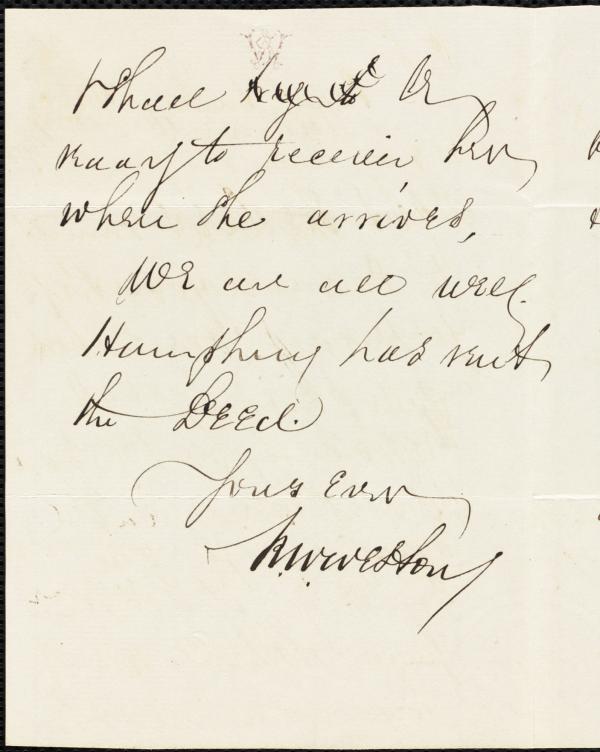 & shall be
ready to receive her
when she arrives,
We are all well.
Humphrey has sent
the Deed.
Yours Ever
Weston